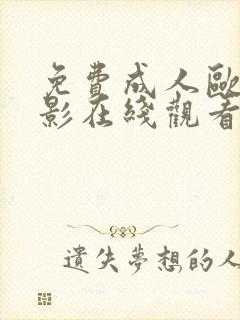 免費成人歐
影在綫觀看
遺失夢想的人